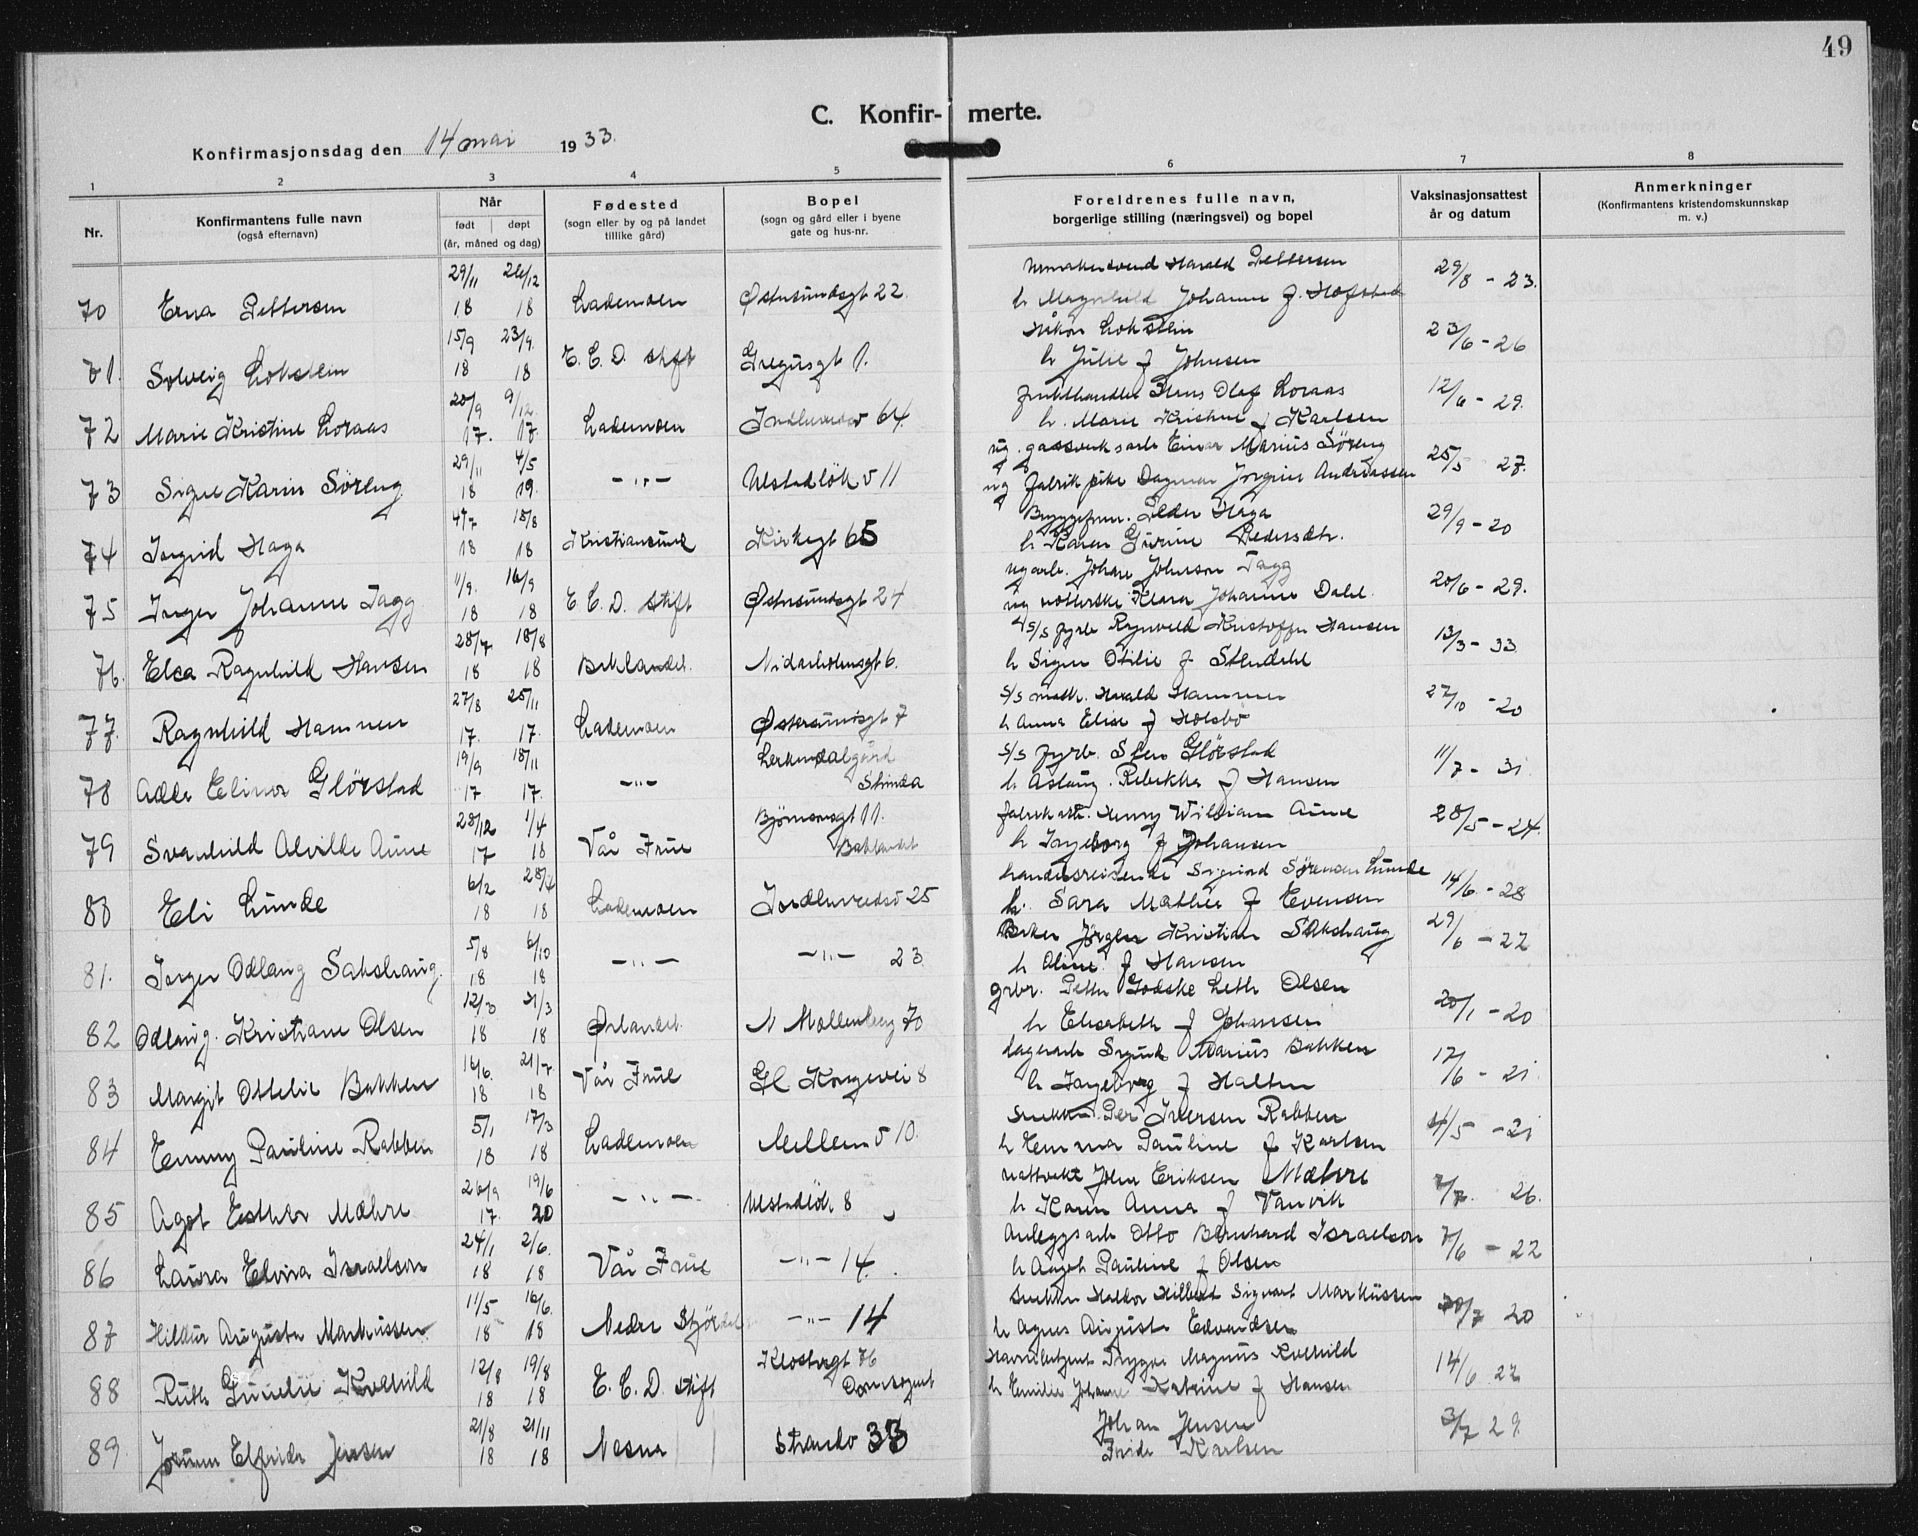 49
C. Konfir- merte.
Konfirmasjonsdag den 14 mai 1933.
1 2 3 4 5 6 7 8
Nr.
Konfirmantens fulle navn
(også efternavn)
Når
født døpt
(år, måned og dag)
Fødested
(sogn eller by og på landet
tillike gård)
Bopel
(sogn og gård eller i byene
gate og hus-nr.
Foreldrenes fulle navn,
borgerlige stilling (næringsvei) og bopel
Vaksinasjonsattest
år og datum
Anmerkninger
(Konfirmantens kristendomskunnskap
m. v.)
29/11 26/12 Harald Pettersen 29/8 - 23.
70 Erna Pettersen 18 18 Lademoen Østersundsgt 22. h. Magnhild Johanne f. Hofstad
15/9 23/9. Håkon Lokstein 23/6 - 26
71. Solveig Lokstein 18 18 E. C. D. stift Gregusgt 1. h Julie f Johnsen
20/9 9/12. frukthandler Hans Olaf Loraas 12/6 - 29.
72 Marie Kristine Loraas 17. 17 Lademoen Indherredsv 64. h. Marie Kristine f Karlsen
29/11 4/5 ug. gassverksarb Einar Marius Søreng 25/5 27.
73 Signe Karin Søreng 18 19. -"- Ulstadløk v 11 ug fabrikpike Dagmar Jørgine Andreassen
4/7 18/8 Bryggeform. Peder Haga 29/9 - 20
74 Ingrid Haga 18 18 Kristiansund Kirkegt 65 h Karen Gurine Pedersdtr.
11/9. 16/9 ug arb. Johan Johnson Tagg 20/6 - 29.
75 Inger Johanne Tagg 18 18 E. C. D. stift Østersundsgt 24 ug Klara Johanne Dahl.
28/7 18/8 s/s fyrb Ragnvald Kristoffer Hansen 13/3 - 33
76. Elsa Ragnhild Hansen 18 18 Baklandet. Nidarholmsgt 6. h Signe Otilie f Stendahl
27/8 25/11 s/s matr. Harald Hammer 27/10 - 20
77. Ragnhild Hammer 17. 17. Lademoen Østersundsgt 7 h Anna Elise f Holsbø
19/9 18/11 Lerkendalgård s/s fyrb. Sten Glørstad 11/7 - 31.
78 Adde Elinor Glørstad 17 17. -"- Strinda h. Aslaug Rebekka f Hansen
28/12 1/4 Bjørnsonsgt 11. fabrikarb. Henry William Aune 28/5 - 24.
79 Svanhild Alvilde Aune 17 18 Vår Frue Baklandet h Ingeborg f Johansen
6/2 28/4 handelsreisende Sigurd Sørensen Lunde 14/6 - 28
80 Eli Lunde 18 18 Lademoen Indherredsv 25 h. Sara Mathea f Evensen
5/8 6/10 Baker Jørgen Kristian Sakshaug 29/6 - 22
81. Inger Odlaug Sakshaug. 18 18 -"- -"- 23 h Oline f Hansen
Petter Godske Leth Olsen 20/1 - 20
82 Odlaug Kristiane Olsen 18 18 Ørlandet. N Møllenberg 70 h Elisabeth f Johansen
16/6. 21/7 lagerarb Sigurd Marius Bakken 17/6 - 21.
83 Margit Ottelie Bakken 18 18 Vår Frue Gl Kongevei 8 h Ingeborg f Halten
5/1 17/3 Snekker Per Iversen Rabben 4/5 - 21
84 Emmy Pauline Rabben 18 18 Lademoen Mellemv 10. h Emma Pauline f Karlsen
26/9 19/6 nattvakt John Eriksen Mæhre 7/7. 26.
85 Agot Esther Mæhre 17. 20 -"- Ulstadløk. 8 h Karen Anna f Vanvik
24/1 2/6. Anleggsarb Otto Bernhard Israelson 7/6 - 22
86 Laura Elvira Israelson 18 18 Vår Frue -"- 14. h Aagot Pauline f Olsen
11/5 16/6. Snekker Halvor Hilbert Sigvart Markussen 20/7 20
87 Hildur Augusta Markussen. 18 18 Nedre Stjørdal -"- 14 h Agnes Augusta Edvardsen
12/8 19/8 Klostergt 76 Trygve Magnus Kvehild 14/6 22
88 Ruth Kvehild 18 18 E. C. D. stift Domsognet h Emilie Johanne Katrine f Hansen
21/8 21/11 Johan Jensen 3/7 29.
89. Elfrida Jensen 18 18 Nesna Strandv 33 Frida Karlsen